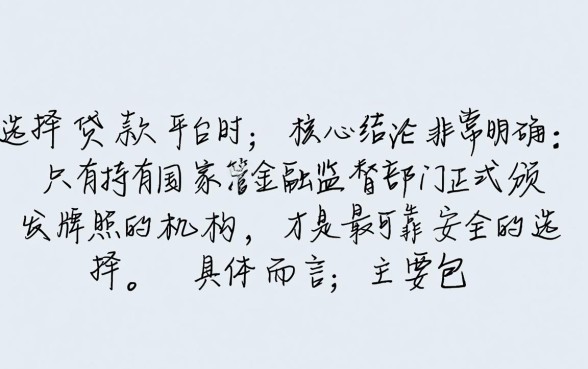 选择贷款平台时；核心结论非常明确：
只有持有国家管金融监督部门正式颁
发牌照的机构，才是最可靠安全的选
择。 具体而言；主要包